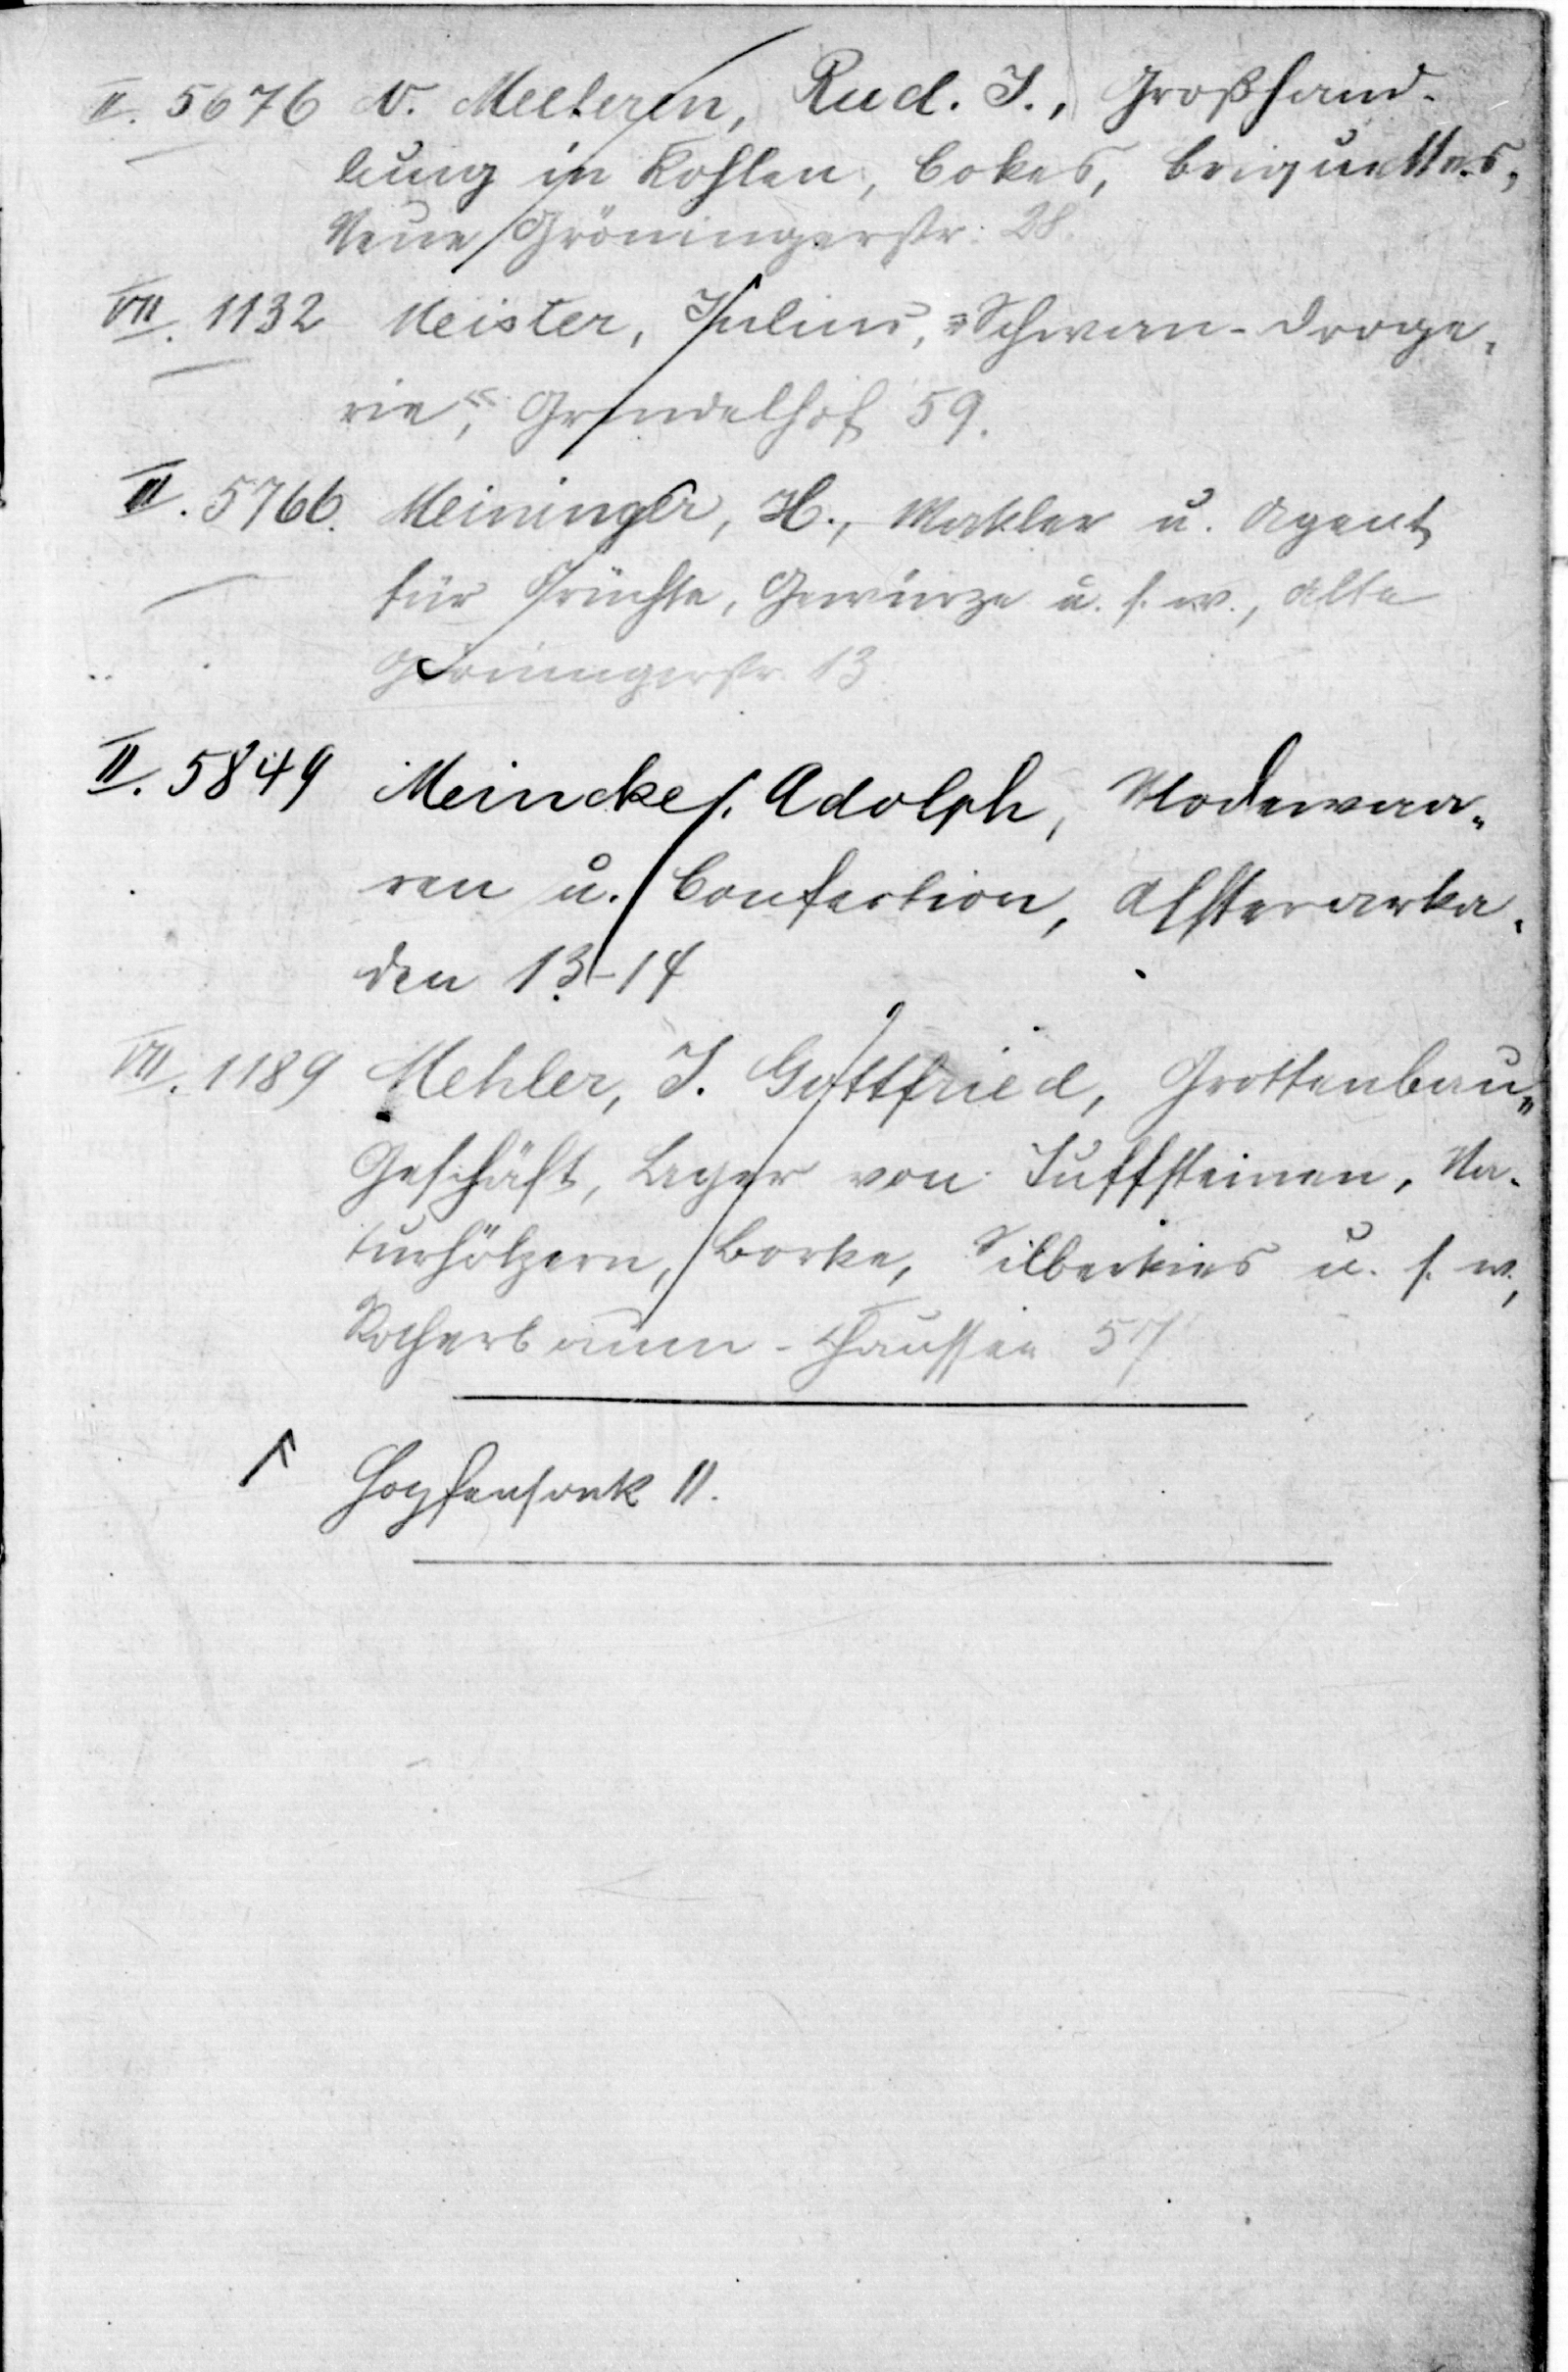 II. 5676 v. Meeteren, Rud. J., Großhand-
lung in Kohlen, Cokes, Briquettes,
Neue Gröningerstr. 28.
VII. 1132 Meister, Julius, "Schwan-Droge-
rie", Grindelhof 59.
II. 5766. Meininger, H., Makler u. Agent
für Früchte, Gewürze u. s. w., Alte
Gröningerstr. 13
II. 5849 Meincke, Adolph, Modewaa-
ren u. Confection, Alsterarka-
den 13-14
VII. 1189 Mehler, J. Gottfried, Grottenbau-
Geschäft, Lager von Tuffsteinen, Na-
turhölzern, Borke, Silberkies u. s. w.,
Rotherbaum-Chaussee 57
Hopfensack 11.